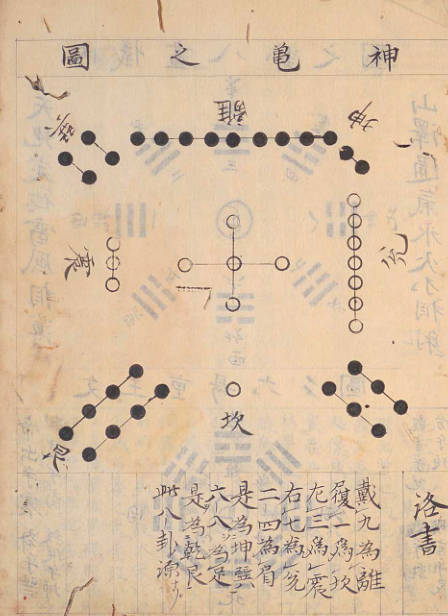 神亀之圖
坤
離
巽
兌
震
坎
艮
洛書
戴九為離
履一為坎
左三為震
右七為兌
二四為肩
是為坤巽
六八為足
是為乾艮
此八卦源